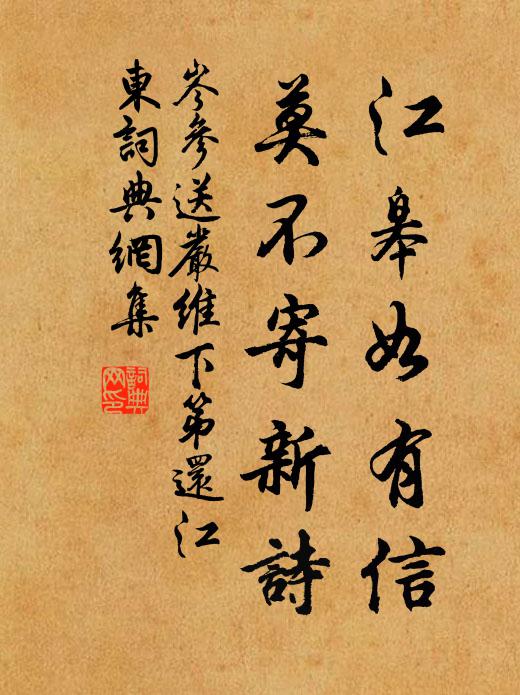 江皋如有信
莫不寄新詩
岑參送嚴維下第還江
東詞典網集
詞典
网印